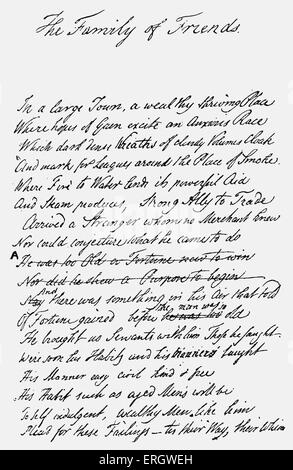 The Family of Friends.
In a large Town, a wealthy thriving Place
Where hopes of Gain excite an anxious Race
Which dark dense Wreaths of cloudy Volumes Cloak
And mark for Leagues around the Place of Smoke.
Where Fire to Water lends its powerful Aid
And Steam produces, Strong Ally to Trade
Arrived a Stranger whom no Merchant knew
Nor could conjecture what he came to do
A He was too Old a Fortune now to win
Nor did he shew a Purpose to begin
Nay And there was something in his Air that told
Of Fortune gained before he was too the man was old
He brought us Servants with him These he sought
Were soon his Habits and his Manners taught
His Manner easy civil kind & free
His Habit such as aged Men's will be
To self indulgent, wealthy Men like him
Plead for these Failings – tis their Way, their Whim
alamy
Image ID: ERGWEH
www.alamy.com